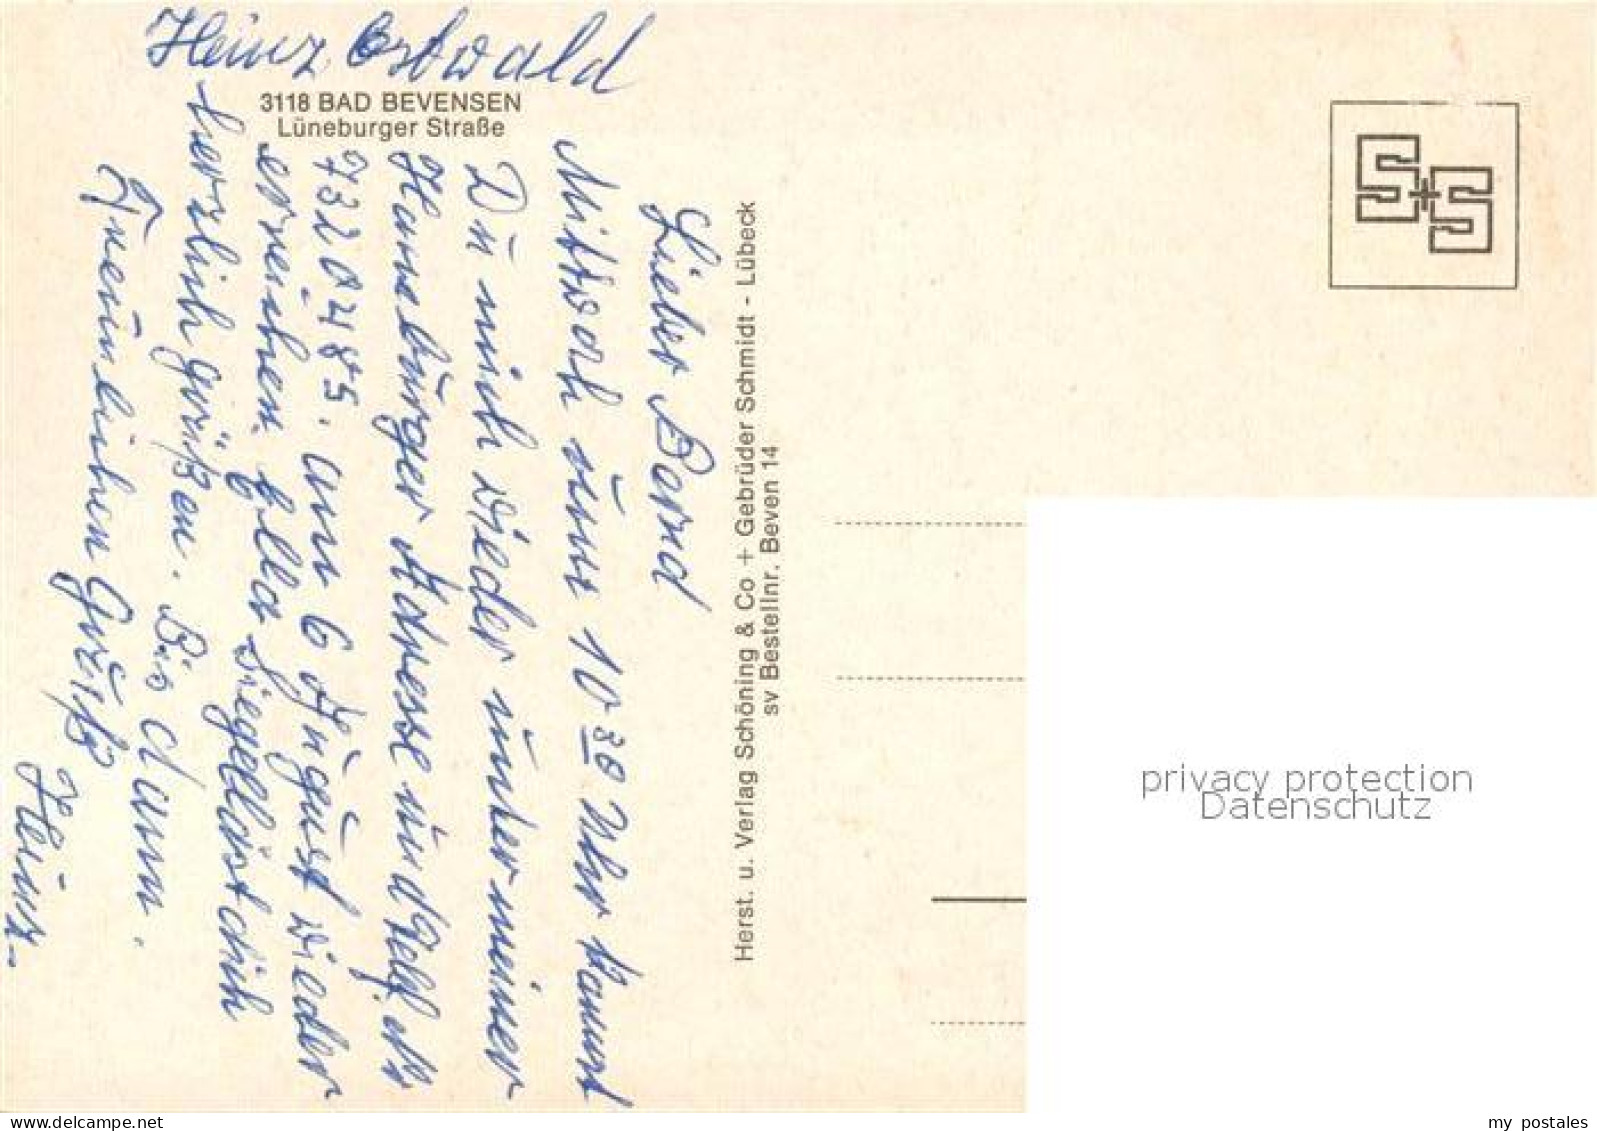 Heinz Ostwald
3118 BAD BEVENSEN
Lüneburger Straße
Lieber Bernd
Mittwoch um 10 30 Uhr kannst
Du mich wieder unter meiner
Hamburger Adresse und Telf. Nr
7320485. am 6 August wieder
erreichen. Ella Siegel läst dich
herzlich grüßen. Bis dann.
Freundlichen Gruß
Heinz
Herst. u. Verlag Schöning & Co + Gebrüder Schmidt - Lübeck
sv Bestellnr. Beven 14
S+S
privacy protection
Datenschutz
delcampe.net
my_postales